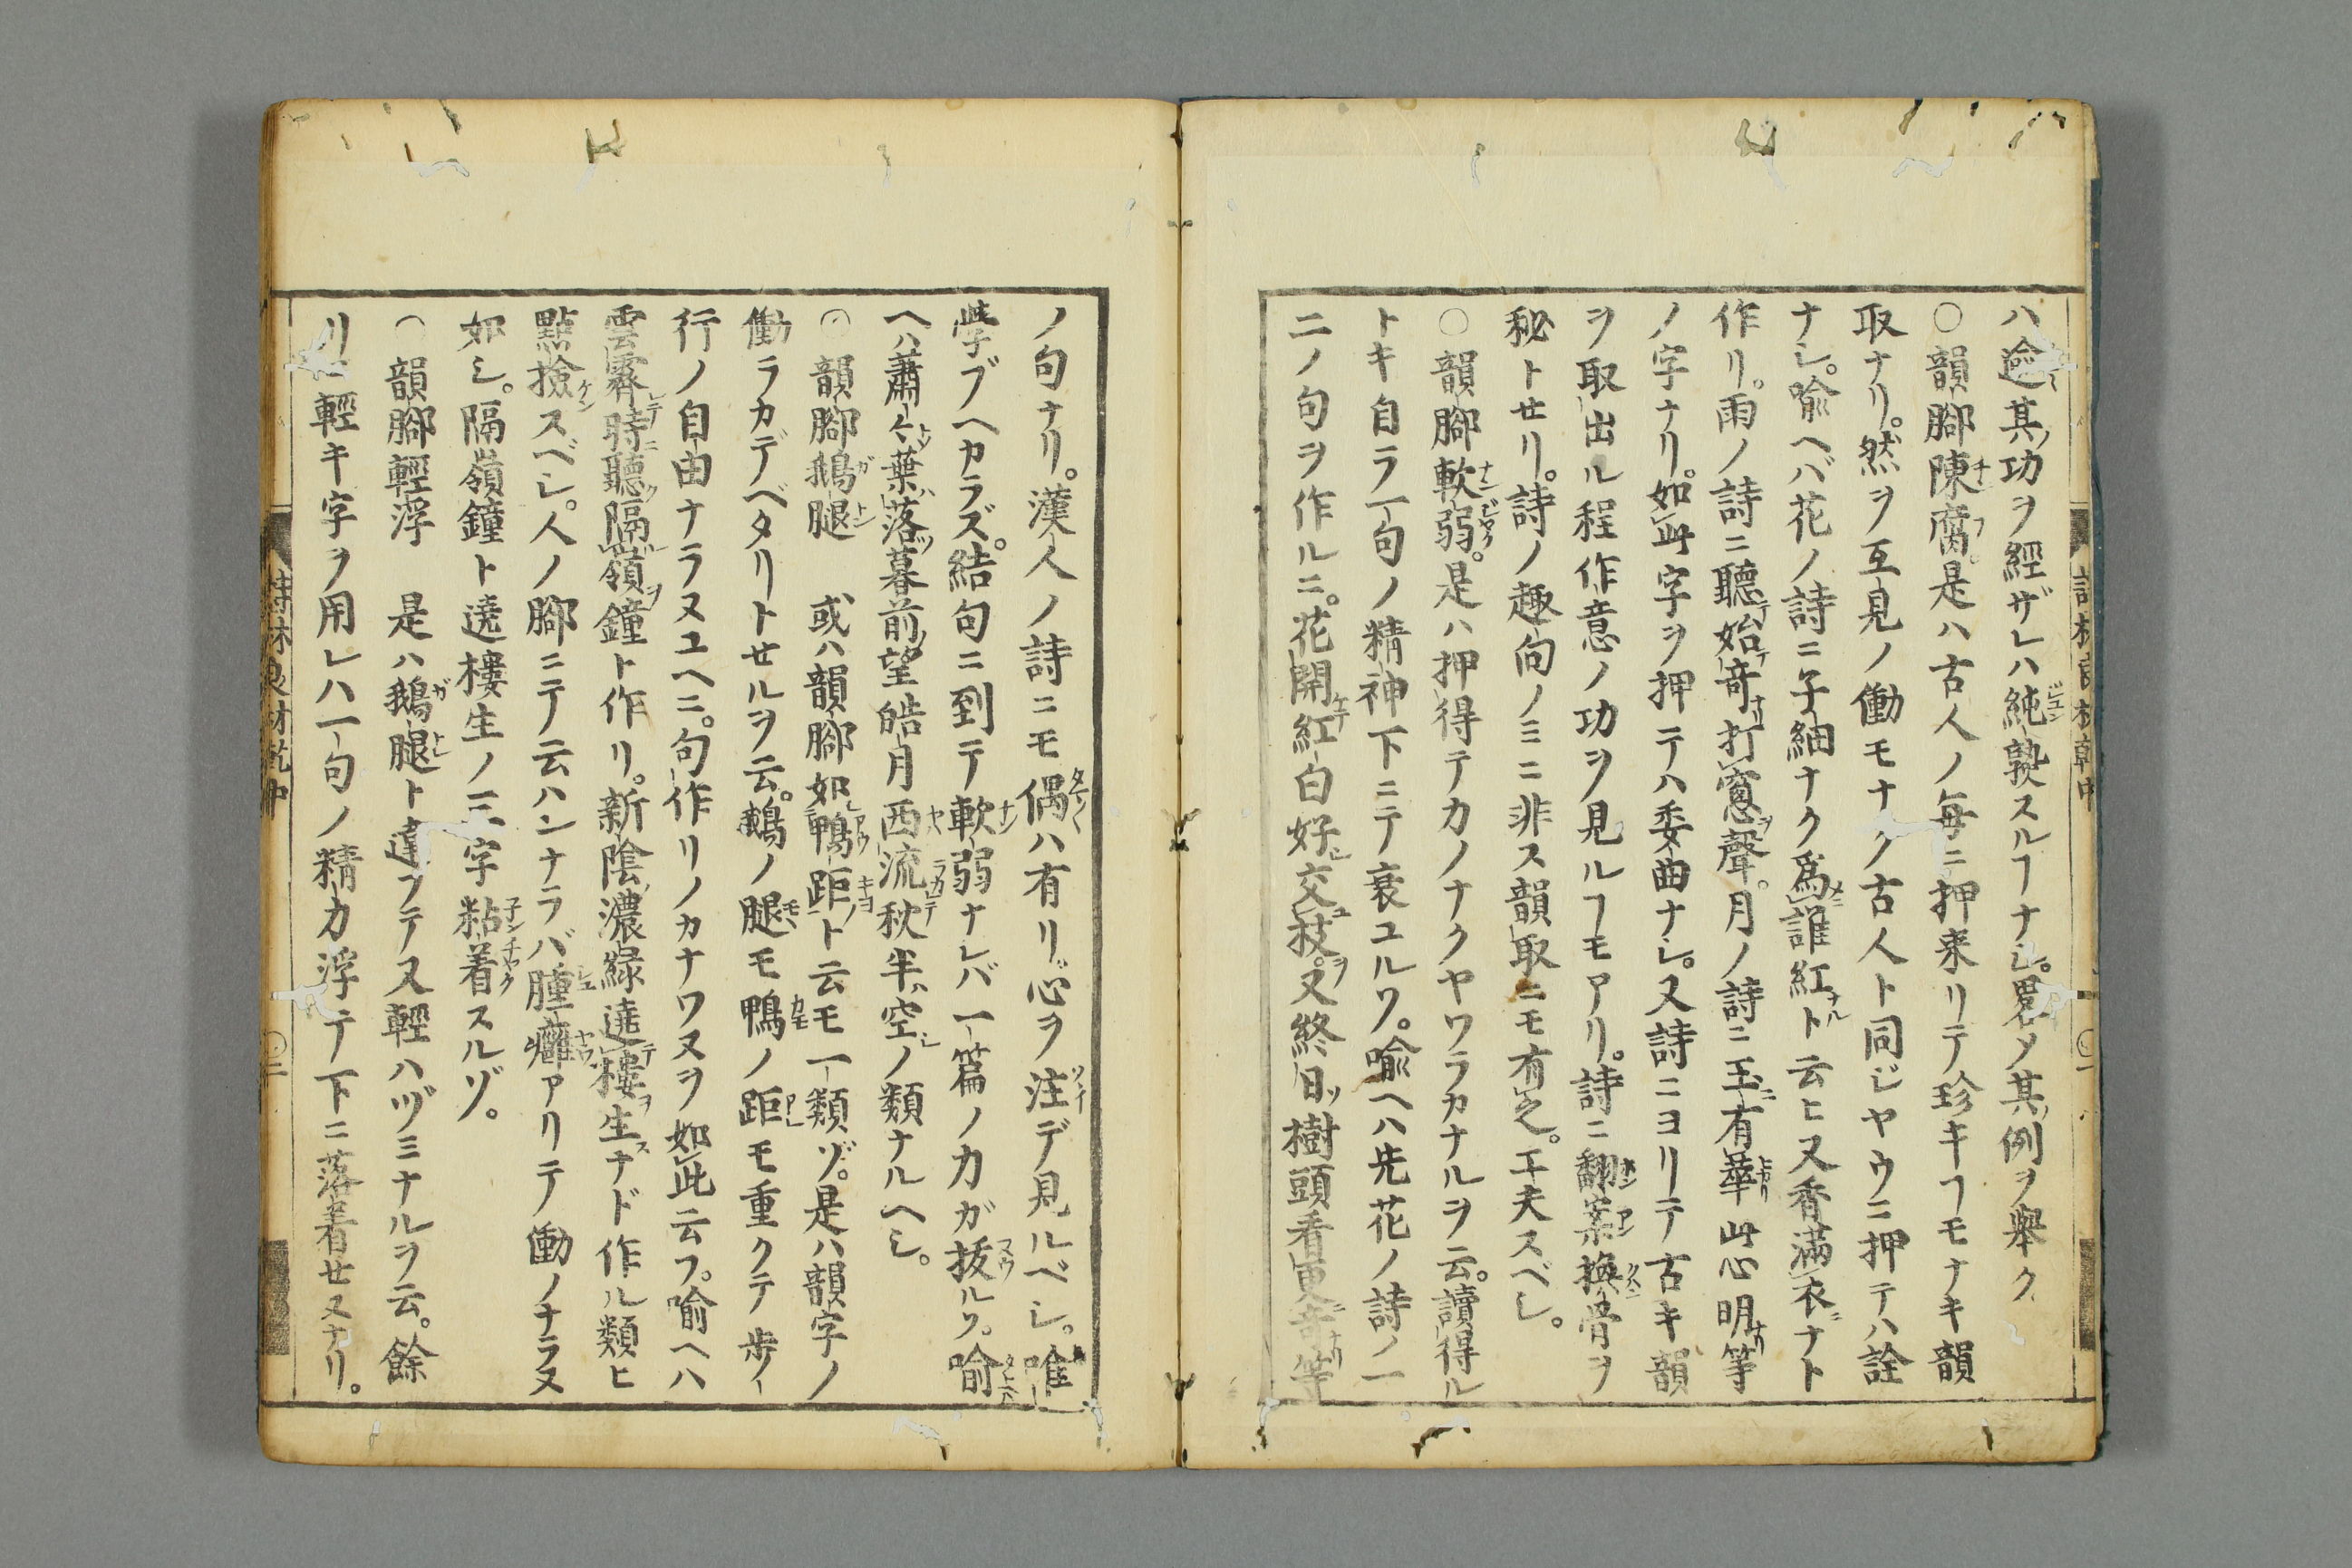 ハ逾其功ヲ經ザレハ純熟スルヿナシ畧メ其例ヲ舉ク
○韻腳陳腐。是ハ古人ノ毎ニ押来リテ珍キヿモナキ韻
取ナリ。然ヲ互見ノ働モナク古人ト同ジヤウニ押テハ詮
ナシ。喩ヘバ花ノ詩ニ子細ナク爲誰紅ト云ヒ又香滿衣ナト
作リ。雨ノ詩ニ聽始竒打窓聲。月ノ詩ニ玉有華此心明等
ノ字ナリ。如此字ヲ押テハ委曲ナシ。又詩ニヨリテ古キ韻
ヲ取出ル程作意ノ功ヲ見ルヿモアリ。詩ニ翻案換骨ヲ
秘トセリ。詩ノ趣向ノミニ非ス韻取ニモ有之。工夫スベシ。
○韻腳軟弱。是ハ押得テカノナクヤワラカナルヲ云。讀得ル
トキ自ラ一句ノ精神下ニテ衰ユルワ。喩ヘハ先花ノ詩ノ一
二ノ句ヲ作ルニ。花開紅白好交枝。又終日樹頭看更竒等
ノ句ナリ。漢人ノ詩ニモ偶ハ有リ心ヲ注デ見ルベシ。唯
學ブヘカラズ。結句ニ到テ軟弱ナレバ一篇ノ力ガ拔ルワ。喻
ヘハ蕭々葉落暮前望皓月西流秋半空ノ類ナルヘシ。
○韻腳鵝腿 或ハ韻腳如鴨距ト云モ一類ゾ。是ハ韻字ノ
働ラカデベタリトセルヲ云。鵝ノ腿モ鴨ノ距モ重クテ歩ノ
行ノ自由ナラヌユヘニ。句作リノカナワヌヲ如此云フ。喻ヘハ
雲霽時聽隔嶺鐘ト作リ。新陰濃緑遶樓生ナド作ル類ヒ
點撿スベシ。人ノ腳ニテ云ハンナラバ腫癰アリテ働ノナラヌ
如シ。隔嶺鐘ト遶樓生ノ三字粘着スルゾ。
○韻腳輕浮 是ハ鵝腿ト違フテ又輕ハヅミナルヲ云。餘
リニ輕キ字ヲ用レハ一句ノ精力浮テ下ニ落着セヌナリ。
詩林良材乾中